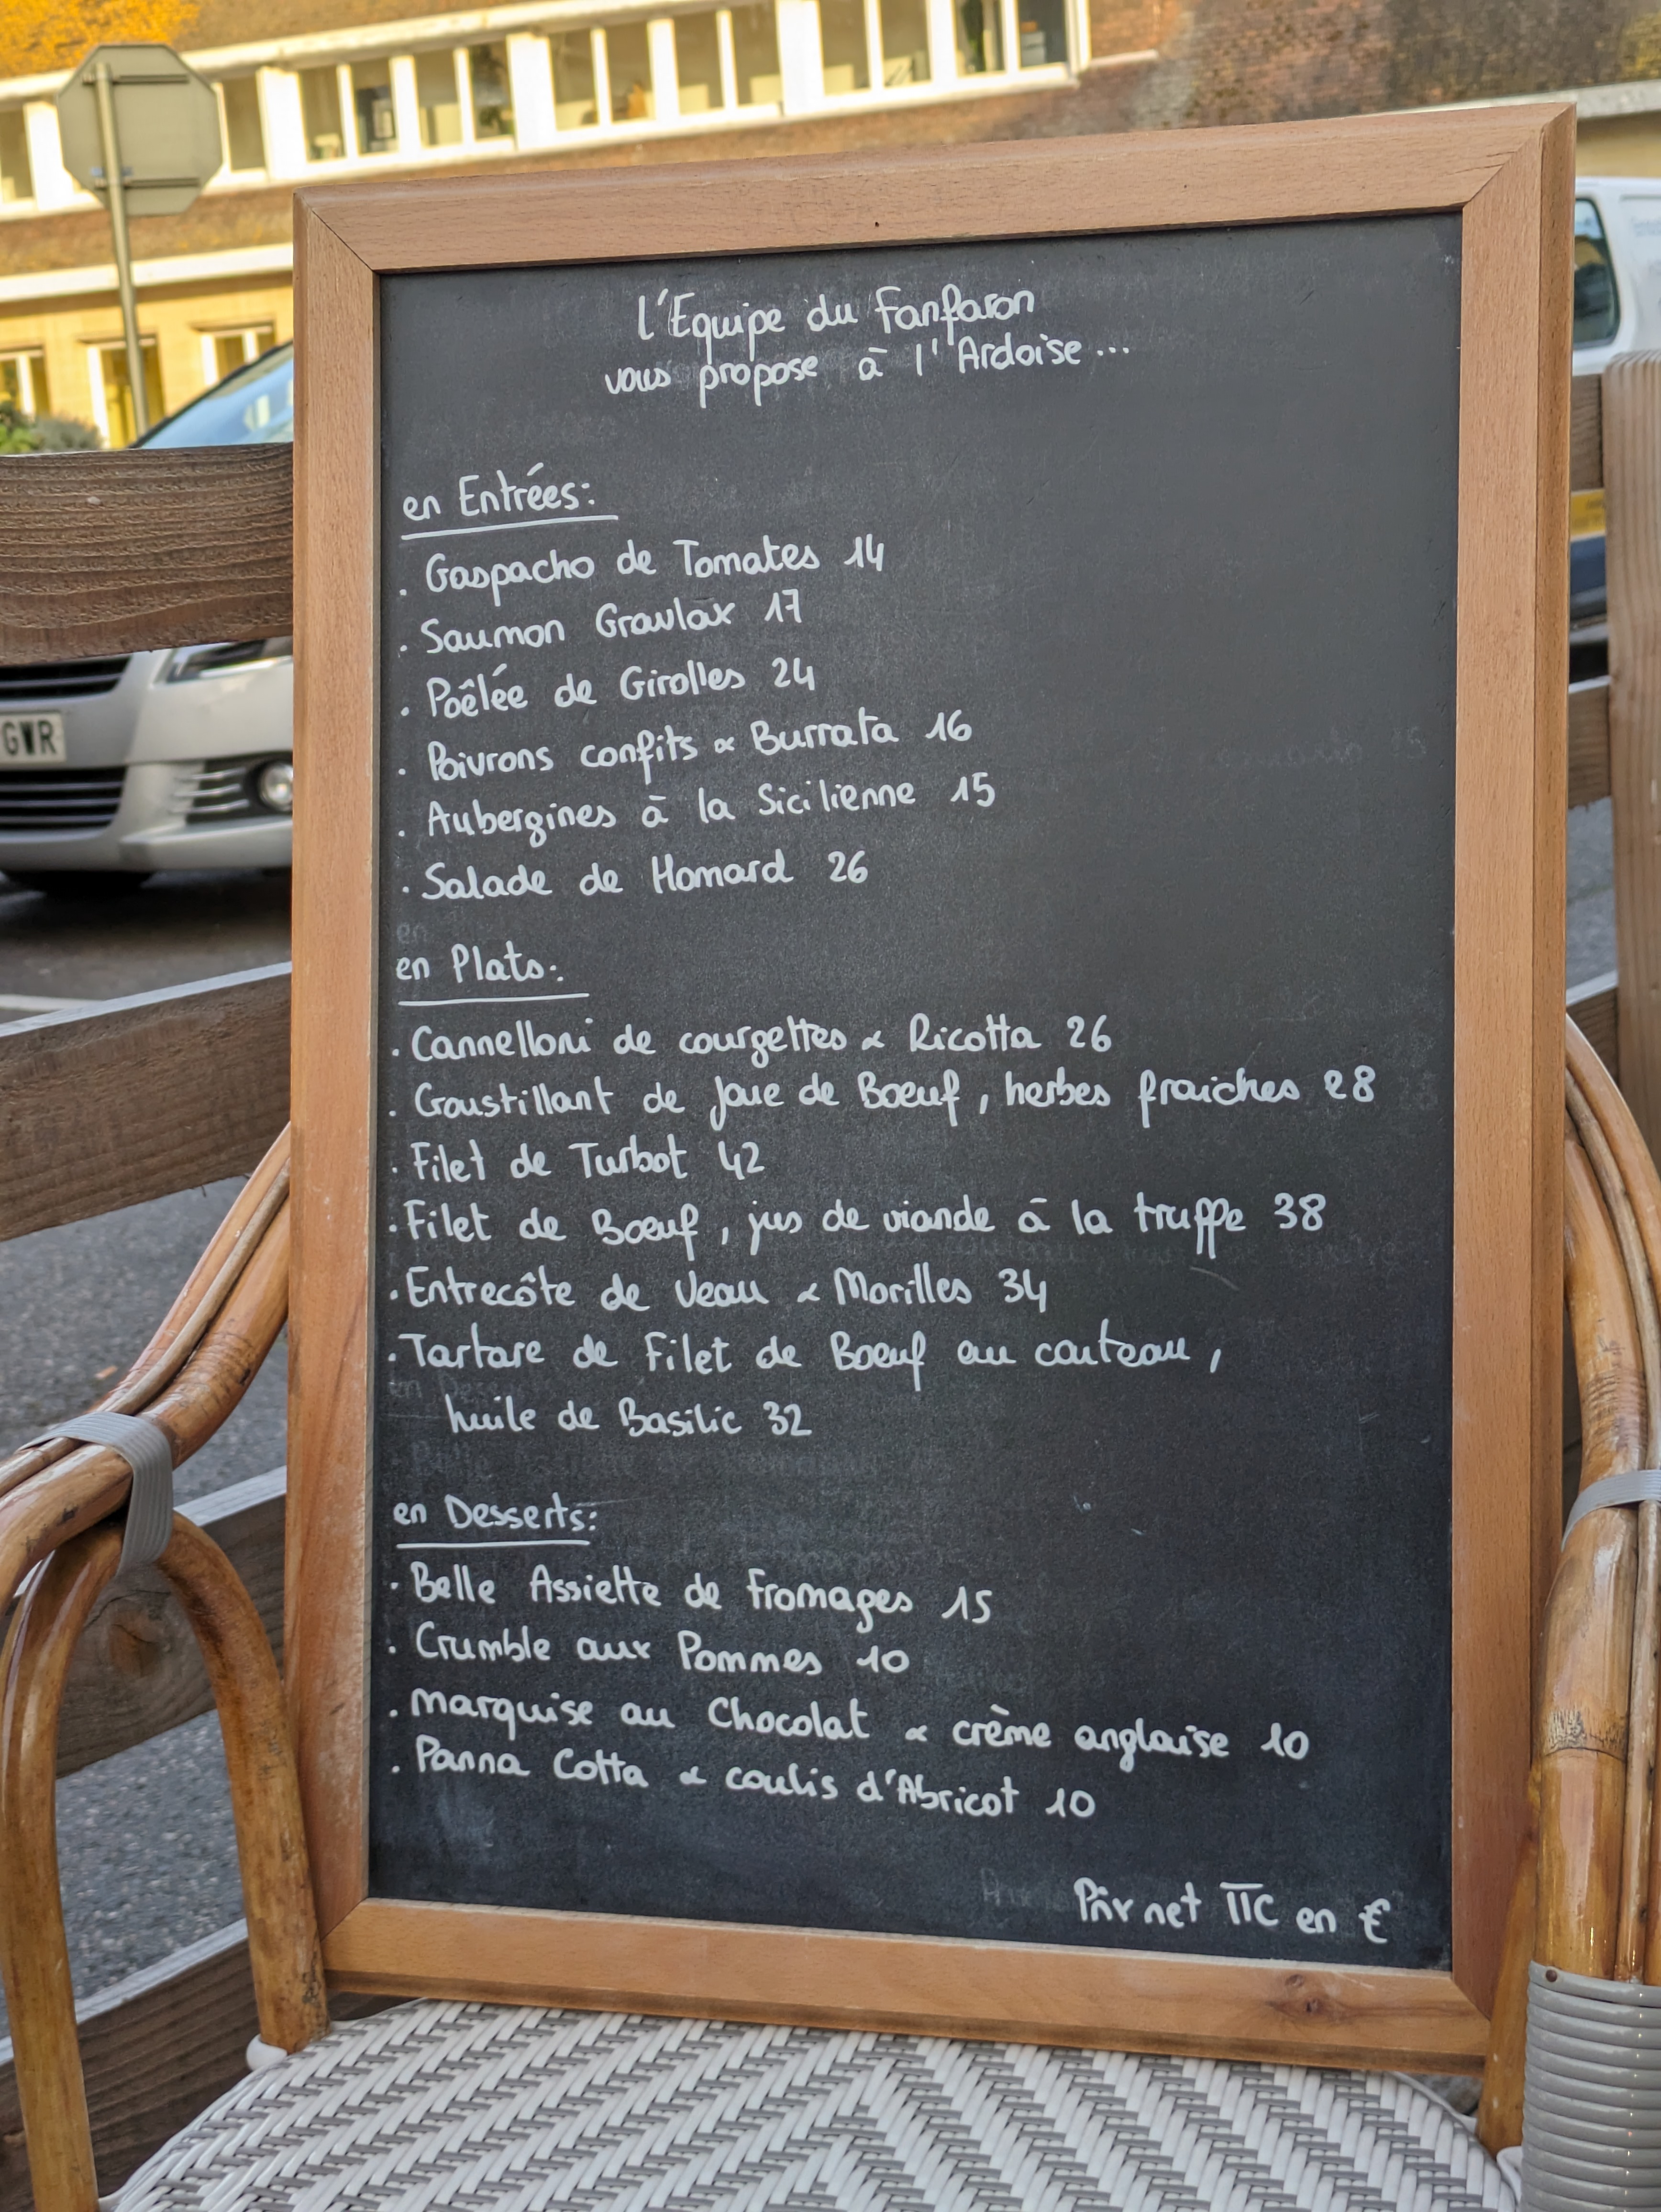 l'Equipe du Fanfaron
vous propose à l'Ardoise...
en Entrées:
. Gaspacho de Tomates 14
. Saumon Gravlax 17
. Poêlée de Girolles 24
. Poivrons confits & Burrata 16
. Aubergines à la Sicilienne 15
. Salade de Homard 26
en Plats:
. Cannelloni de courgettes & Ricotta 26
. Croustillant de Joue de Boeuf, herbes fraiches 28
. Filet de Turbot 42
. Filet de Boeuf, jus de viande à la truffe 38
. Entrecôte de Veau & Morilles 34
. Tartare de Filet de Boeuf au couteau,
huile de Basilic 32
en Desserts:
. Belle Assiette de Fromages 15
. Crumble aux Pommes 10
. Marquise au Chocolat & crème anglaise 10
. Panna Cotta & coulis d'Abricot 10
Prix net TTC en €
GWR